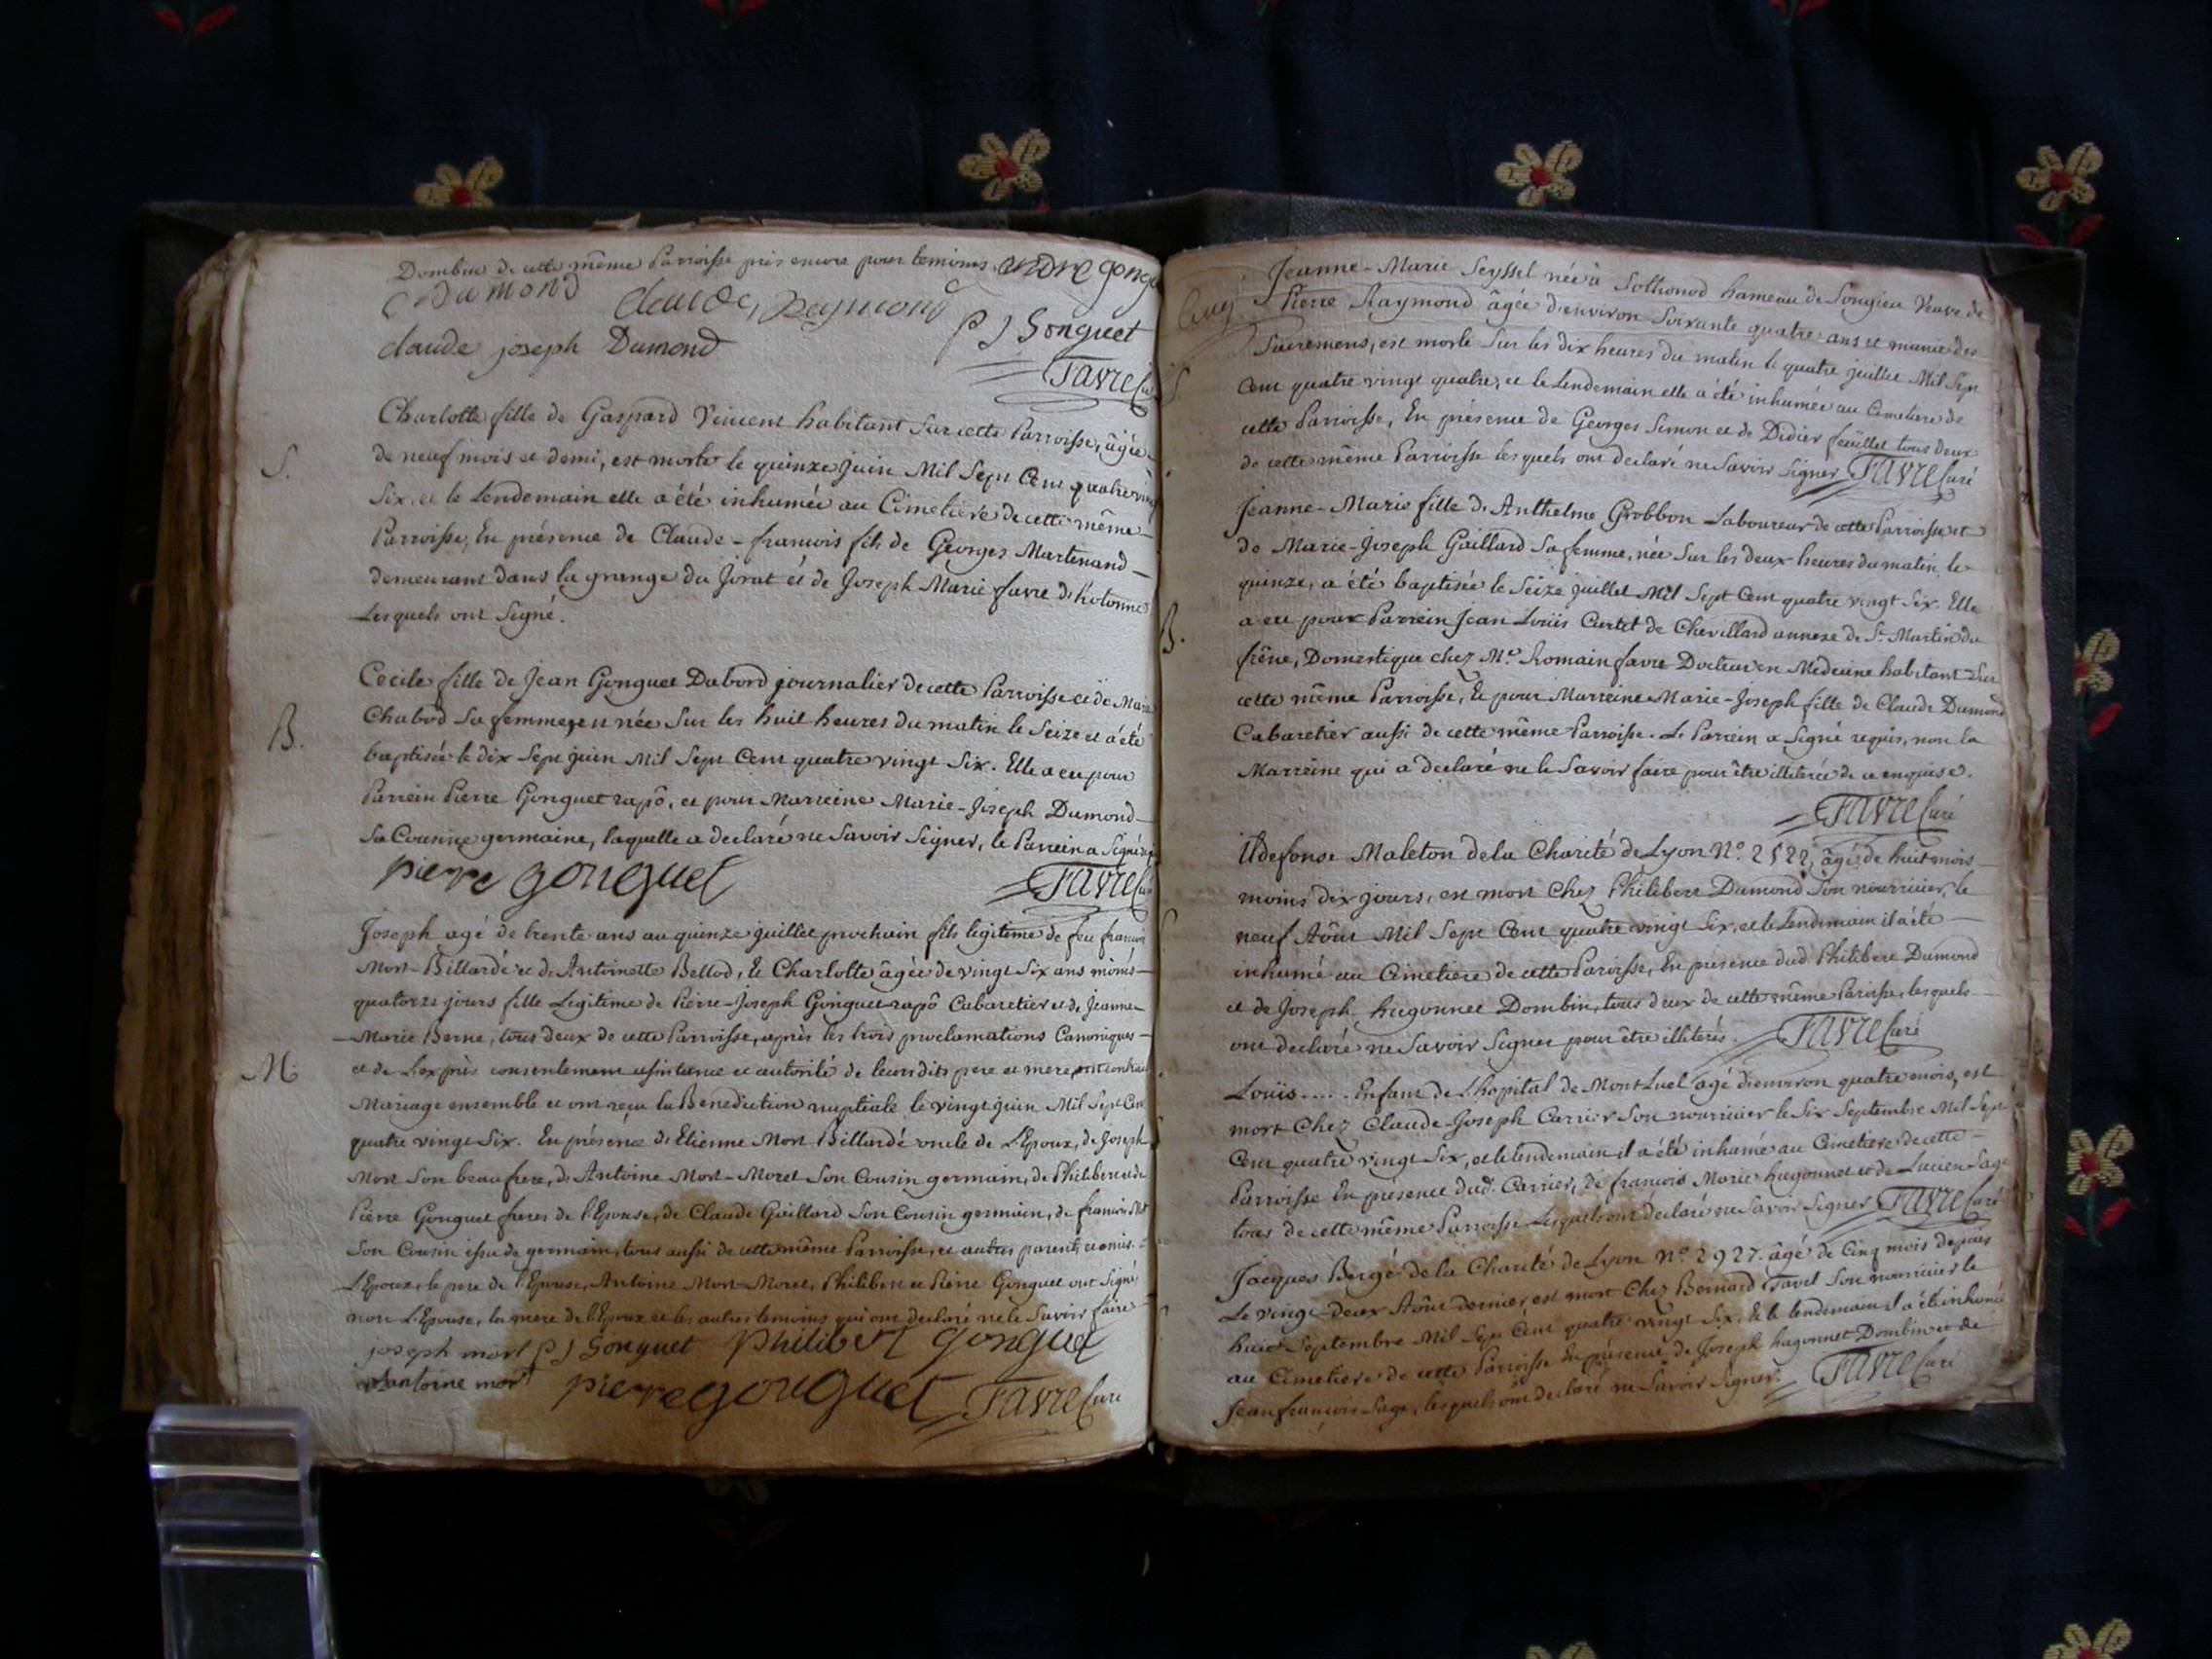 Dombin de cette même Parroisse pris encore pour temoins. andre gongu
C. dumond claude Reymond
P J Gonguet
claude joseph Dumond
Favre Curé
Charlotte fille de Gaspard Vincent habitant sur cette Parroisse, âgée
S.
de neuf mois et demi, est morte le quinze juin Mil Sept Cent quatre vingt
Six. et le Lendemain elle a été inhumée au Cimetiere de cette même
Parroisse, En présence de Claude-francois fils de Georges Martinand
demeurant dans la grange du Jorat et de Joseph Marie favre d'hotonne
Lesquels ont Signé.
Cecile fille de Jean Gonguet Dabord journalier de cette Parroisse et de Marie
B.
Chabod Sa femme, née Sur les huit heures du matin le Seize et a été
baptisée le dix Sept juin Mil Sept Cent quatre vingt Six. Elle a eu pour
Parrein Pierre Gonguet rapô, et pour Marreine Marie-Joseph Dumond
Sa Cousine germaine, laquelle a declaré ne Savoir Signer, le Parrein a Signé
pierre gonguet
Favre Curé
Joseph agé de trente ans au quinze juillet prochain fils legitime de feu francois
Mort-Billardé et de Antoinette Bellod, Et Charlotte âgée de vingt Six ans moins
quatorze jours fille Legitime de Pierre-Joseph Gonguet rapô Cabaretier et de Jeanne
Marie Berne, tous deux de cette Parroisse, après les trois proclamations Canoniques
M.
et de L'exprès consentement assistance et autorité de leursdits pere et mere ont contracté
Mariage ensemble et ont reçu la Benediction nuptiale le vingt juin Mil Sept Cent
quatre vingt Six. En présence de Etienne Mort Billardé oncle de L'Epoux, de Joseph
Mort Son beaufrere, de Antoine Mort-Moret Son Cousin germain, de Philibert et de
Pierre Gonguet freres de l'Epouse, de Claude Gaillard Son Cousin germain, de francois Mort
Son Cousin issu de germain, tous aussi de cette même Parroisse, et autres parents et amis.
L'Epoux, le pere de l'Epouse, Antoine Mort-Moret, Philibert et Pierre Gonguet ont Signé,
non L'Epouse, la mere de l'Epoux et les autres temoins qui ont declaré ne le Savoir faire
joseph mort P J Gonguet philibert gonguet
antoine mort pierre gonguet Favre Curé
Jeanne-Marie Seyssel née à Sothonod hameau de Songieu Veuve de
Pierre Raymond âgée d'environ Soixante quatre ans et munie des
Sacremens, est morte Sur les dix heures du matin le quatre juillet Mil Sept
S.
Cent quatre vingt quatre, et le Lendemain elle a été inhumée au Cimetiere de
cette Parroisse, En présence de Georges Simon et de Didier feuillet tous deux
de cette même Parroisse les quels ont declaré ne Savoir Signer Favre Curé
Jeanne-Marie fille de Anthelme Grobbon Laboureur de cette Parroisse et
de Marie-Joseph Gaillard Sa femme, née Sur les deux heures du matin le
quinze, a été baptisée le Seize juillet Mil Sept Cent quatre vingt Six. Elle
B.
a eu pour Parrein Jean Loüis Curtet de Chevillard annexe de St. Martin du
frêne, Domestique chez Mr. Romain favre Docteur en Medecine habitant Sur
cette même Parroisse, Et pour Marreine Marie-Joseph fille de Claude Dumond
Cabaretier aussi de cette même Parroisse. Le Parrein a Signé requis, non la
Marreine qui a declaré ne le Savoir faire pour être illiterée de ce enquise.
Favre Curé
Ildefonse Maleton de la Charité de Lyon N°. 2522, âgé de huit mois
moins dix jours, est mort Chez Philibert Dumond Son nourricier, le
neuf Aôut Mil Sept Cent quatre vingt Six, et le Lendemain il a été
inhumé au Cimetiere de cette Paroisse, En présence dud. Philibert Dumond
et de Joseph hugonnet Dombin, tous deux de cette même Paroisse, lesquels
ont declaré ne Savoir Signer pour être illiterés. Favre Curé
Loüis.... Enfant de L'hopital de MontLuel agé d'environ quatre mois, est
mort Chez Claude-Joseph Carrier Son nourricier le Six Septembre Mil Sept
Cent quatre vingt Six, et le Lendemain il a été inhumé au Cimetiere de cette
Parroisse En présence dud. Carrier, de francois Marie hugonnet et de Lucien Sage
tous de cette même Parroisse Lesquels ont déclaré ne Savoir Signer Favre Curé
Jacques Bergé de la Charité de Lyon N°. 2927. âgé de Cinq mois depuis
Le vingt-deux Aôut dernier, est mort Chez Bernard Tavel Son nourricier le
huit Septembre Mil Sept Cent quatre vingt Six, Et le lendemain il a été inhumé
au Cimetiere de cette Parroisse En présence de Joseph hugonnet Dombin et de
Jean francois Sage, lesquels ont declaré ne Savoir Signer. Favre Curé